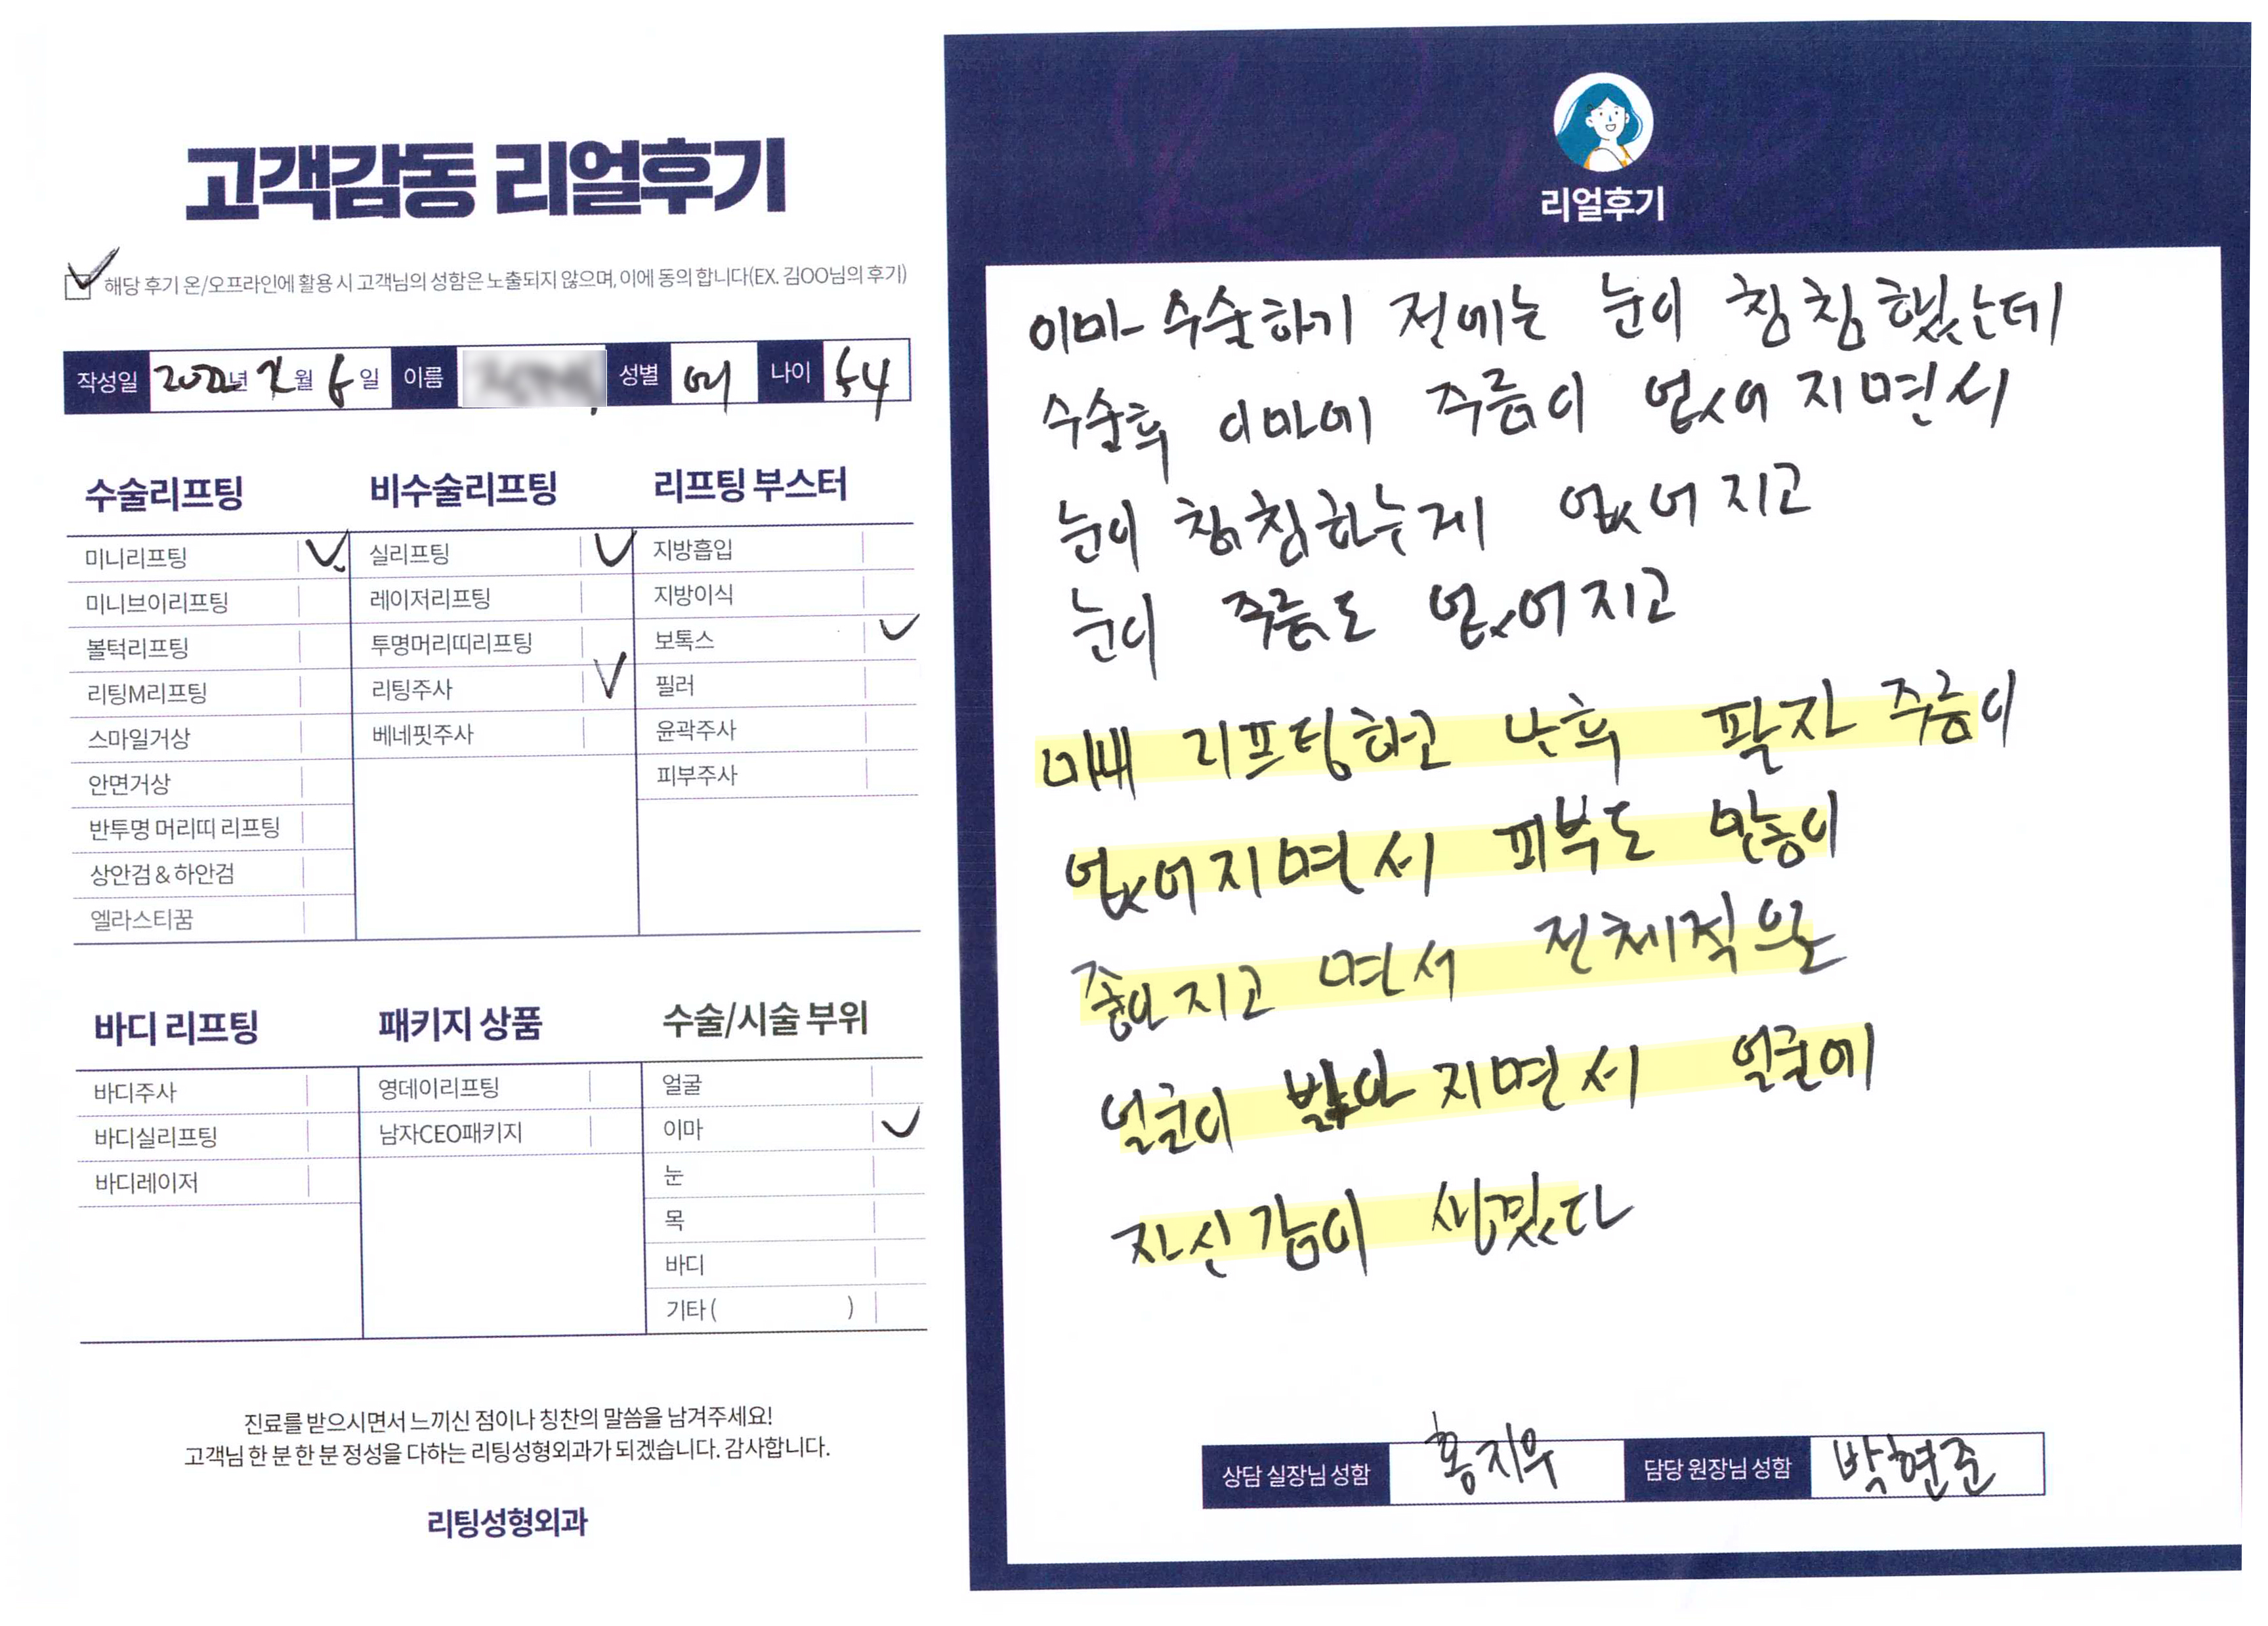 고객감동 리얼후기
해당 후기 온/오프라인에 활용 시 고객님의 성함은 노출되지 않으며, 이에 동의 합니다(EX. 김OO님의 후기)
작성일 2022년 7월 6일 이름 성별 여 나이 54
수술리프팅
미니리프팅
미니브이리프팅
볼턱리프팅
리팅M리프팅
스마일거상
안면거상
반투명 머리띠 리프팅
상안검 & 하안검
엘라스티꿈
비수술리프팅
실리프팅
레이저리프팅
투명머리띠리프팅
리팅주사
베네핏주사
리프팅 부스터
지방흡입
지방이식
보톡스
필러
윤곽주사
피부주사
바디 리프팅
바디주사
바디실리프팅
바디레이저
패키지 상품
영데이리프팅
남자CEO패키지
수술/시술 부위
얼굴
이마
눈
목
바디
기타 ( )
진료를 받으시면서 느끼신 점이나 칭찬의 말씀을 남겨주세요!
고객님 한 분 한 분 정성을 다하는 리팅성형외과가 되겠습니다. 감사합니다.
리팅성형외과
리얼후기
이마 수술하기 전에는 눈이 침침했는데
수술후 이마에 주름이 없어지면서
눈이 침침하는게 없어지고
눈이 주름도 없어지고
리프팅하고 난후 팔자 주름이
없어지면서 피부도 많이
좋아지고 면서 전체적으로
얼굴이 밝아지면서 얼굴에
자신감이 생겼다
상담 실장님 성함 홍지우 담당 원장님 성함 박현준